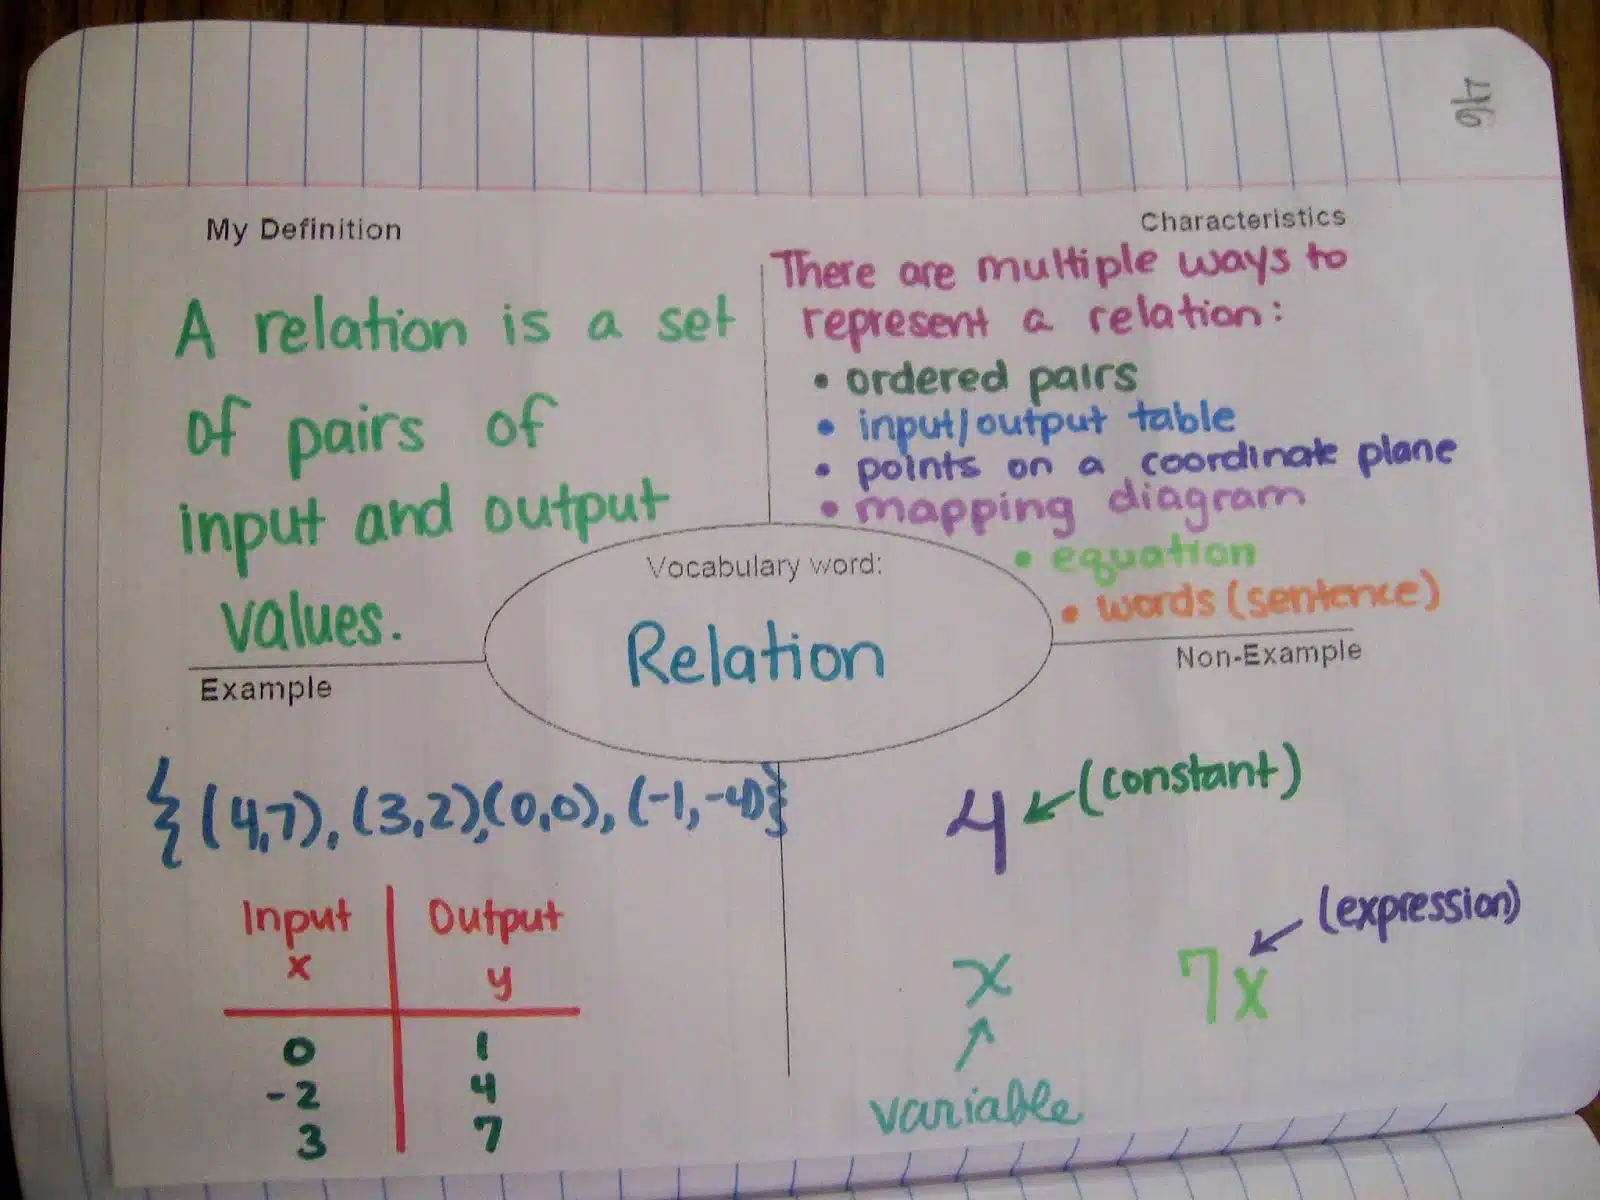 46
My Definition
A relation is a set
of pairs of
input and output
values.
Characteristics
There are multiple ways to
represent a relation:
• ordered pairs
• input/output table
• points on a coordinate plane
• mapping diagram
• equation
• words (sentence)
Vocabulary word:
Relation
Example
{(4,7), (3,2),(0,0), (-1,-4)}
Input Output
x y
0 1
-2 4
3 7
Non-Example
4 (constant)
(expression)
x 7x
variable